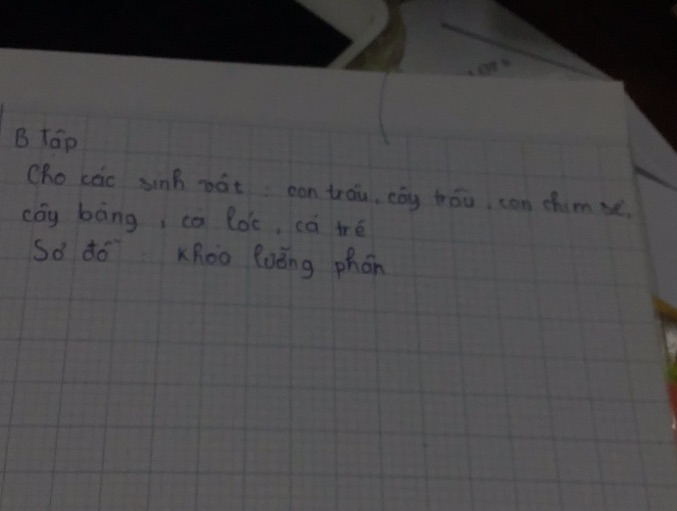 B Tập
Cho các sinh vật : con trâu, cây trầu, con chim sẻ,
cây bàng, cá lóc, cá trê
Sơ đồ : khóa lưỡng phân